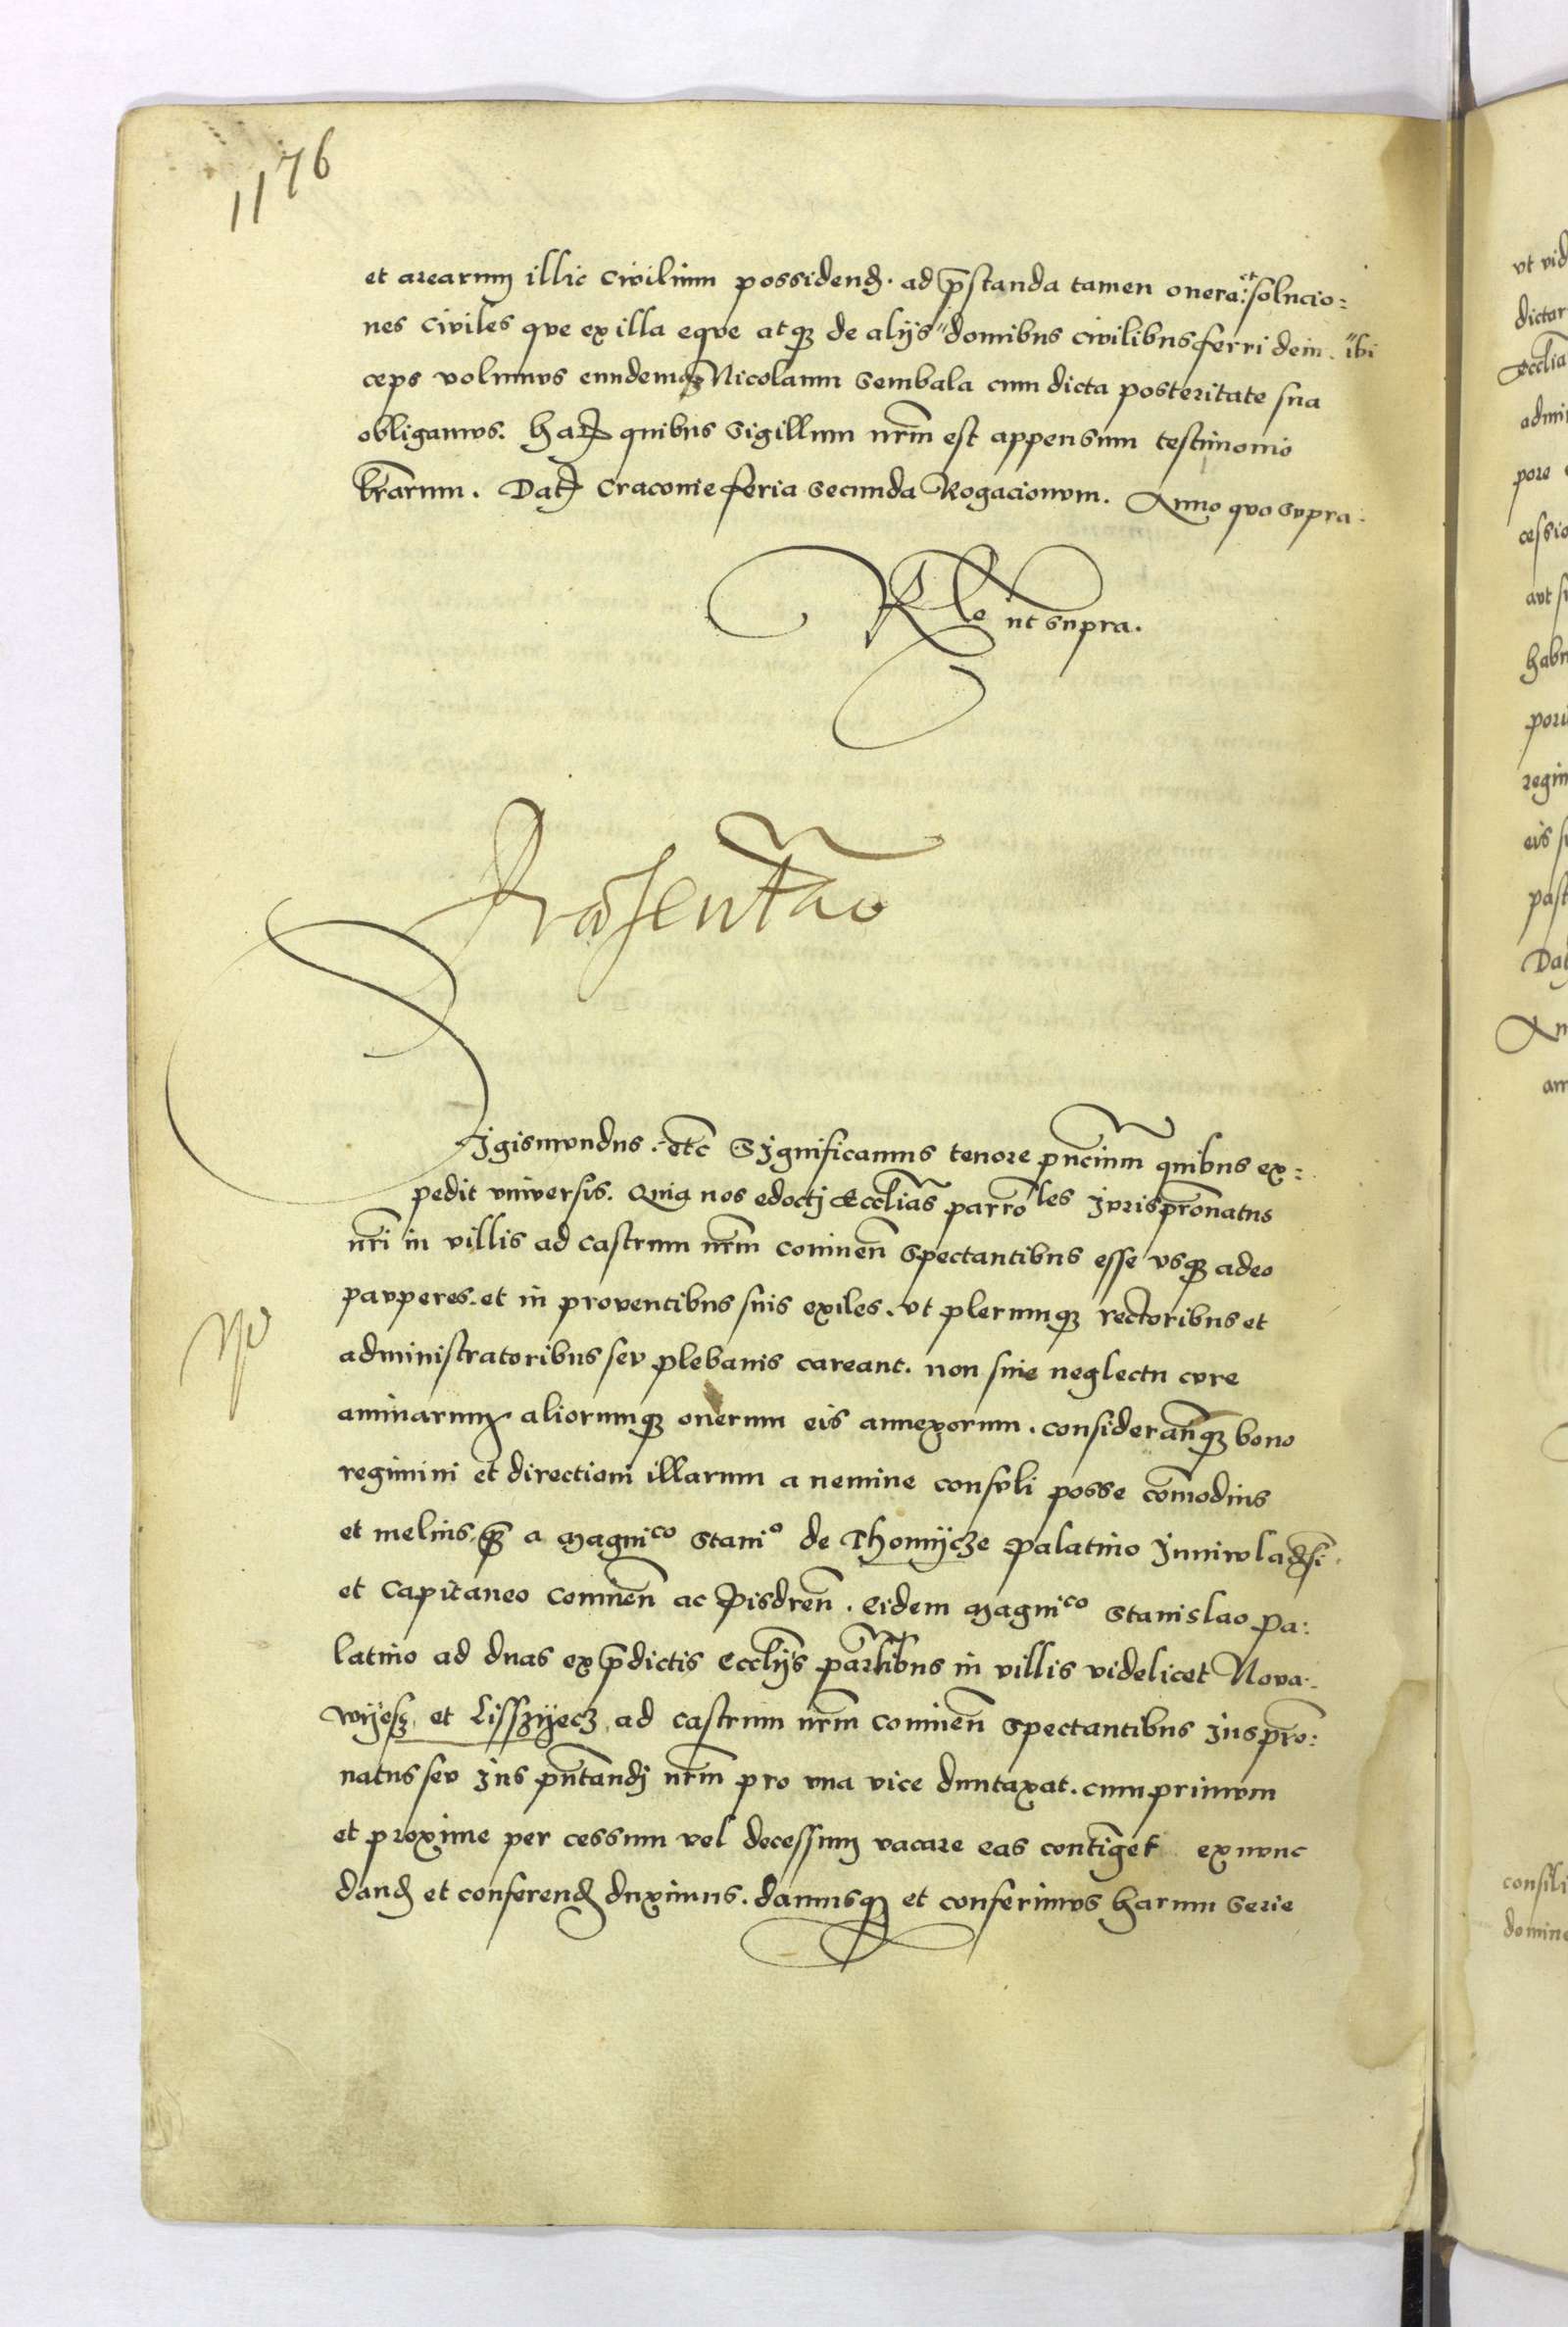 1176
et arearum illic civilium possidend. ad p̄standa tamen onera: et solucio:
nes civiles que ex illa eque atq3 de alijs " domibus civilibus ferri dein. "ibi
ceps volumus eundemq3 Nicolaum Sembala cum dicta posteritate sua
obligamus. Har quibus Sigillum nr̄m est appensum testimonio
lr̄arum. Dat Cracovie feria Secunda Rogacionum. Anno quo supra.
Rłe ut supra.
Præsentac̄o
Sigismundus. etc̄ Significamus tenore pn̄cium quibus ex:
pedit universis. Quia nos edoctj Ecclīas parrōles Jurispr̄onatus
nr̄i in villis ad castrum nr̄m coninen̄ Spectantibus esse usq3 adeo
pauperes. et in proventibus suis exiles. ut plerumq3 rectoribus et
administratoribus seu plebanis careant. non sine neglectu cure
animarum aliorumq3 onerum eis annexorum. Consideran̄q3 bono
regimini et directioni illarum a nemine consuli posse com̄odius
et melius. q̄3 a Magnico Stanio de Thomijcze palatino Juniwladsi.
et Capitaneo coninen̄ ac Pisdren̄. Eidem Magnico Stanislao pa:
latino ad duas ex p̄dictis Ecclijs̄ par̄libus in villis videlicet Nova.
wyesz et Lisszyecz ad castrum nr̄m coninen̄ Spectantibus Jus pr̄o:
natus seu Jus pn̄tandj nr̄m pro una vice duntaxat. cum primum
et proxime per cessum vel decessum vacare eas contin̄get ex nunc
dand et conferend duximus. damusq3 et conferimus harum Serie
ut vid
dictar
Ecclīa
admi
pore
cessio
aut si
habu
regim
eis s
past
Dat
An
consili
domine